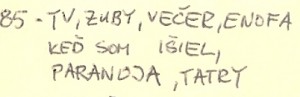 85 - TV, ZUBY, VEČER, ENOFA
KEĎ SOM IŠIEL,
PARANOJA, TATRY